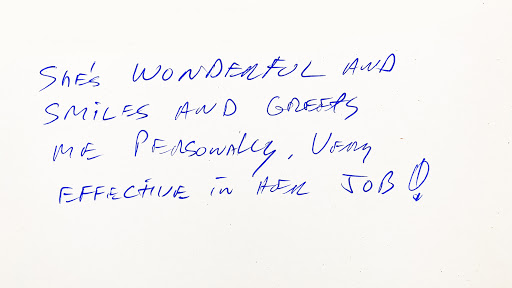 She's WONDERFUL AND
SMILES AND GREETS
ME PERSONALLY, VERY
EFFECTIVE in HER JOB!